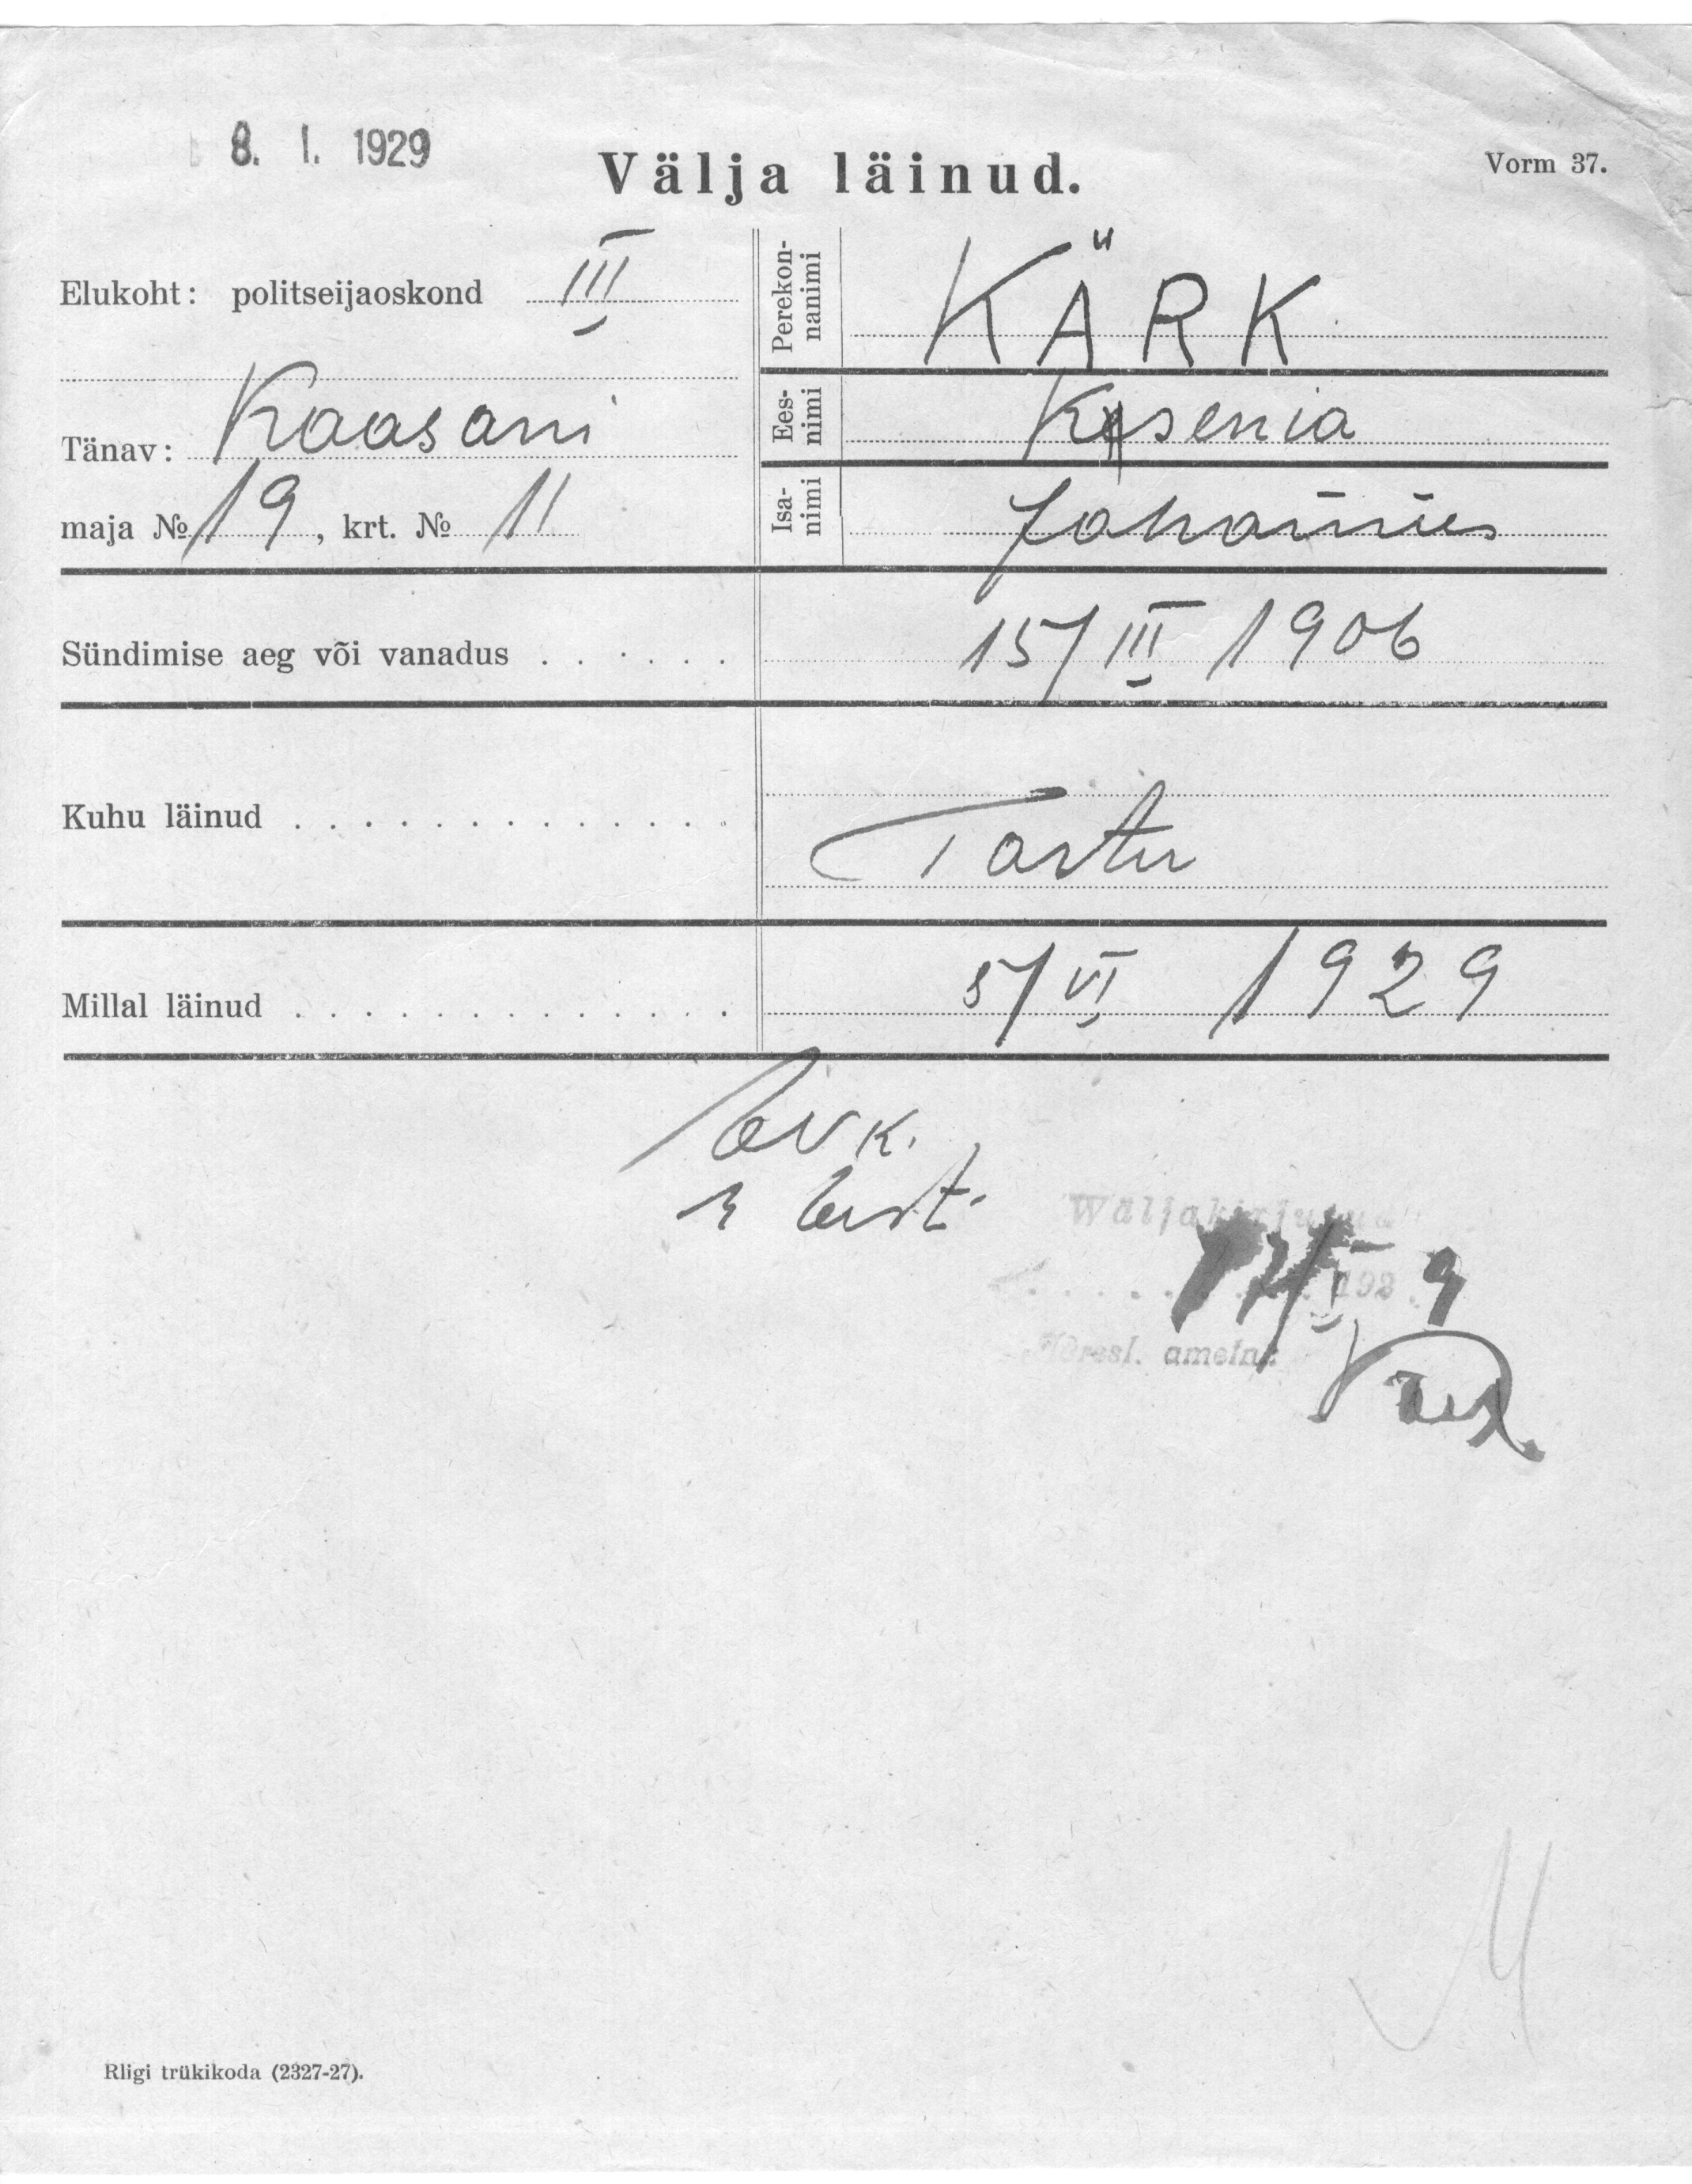 8. I. 1929
Välja läinud.
Vorm 37.
Elukoht: politseijaoskond III
Tänav: Kaasani
maja № 19, krt. № 11
Perekonnanimi KÄRK
Eesnimi Ksenia
Isanimi Johannes
Sündimise aeg või vanadus . . . . . . 15/III 1906
Kuhu läinud . . . . . . . . . . . . . . Tartu
Millal läinud . . . . . . . . . . . . . . 5/VI 1929
Wäljakirjutatud
192 9
ametn.
Rligi trükikoda (2327-27).